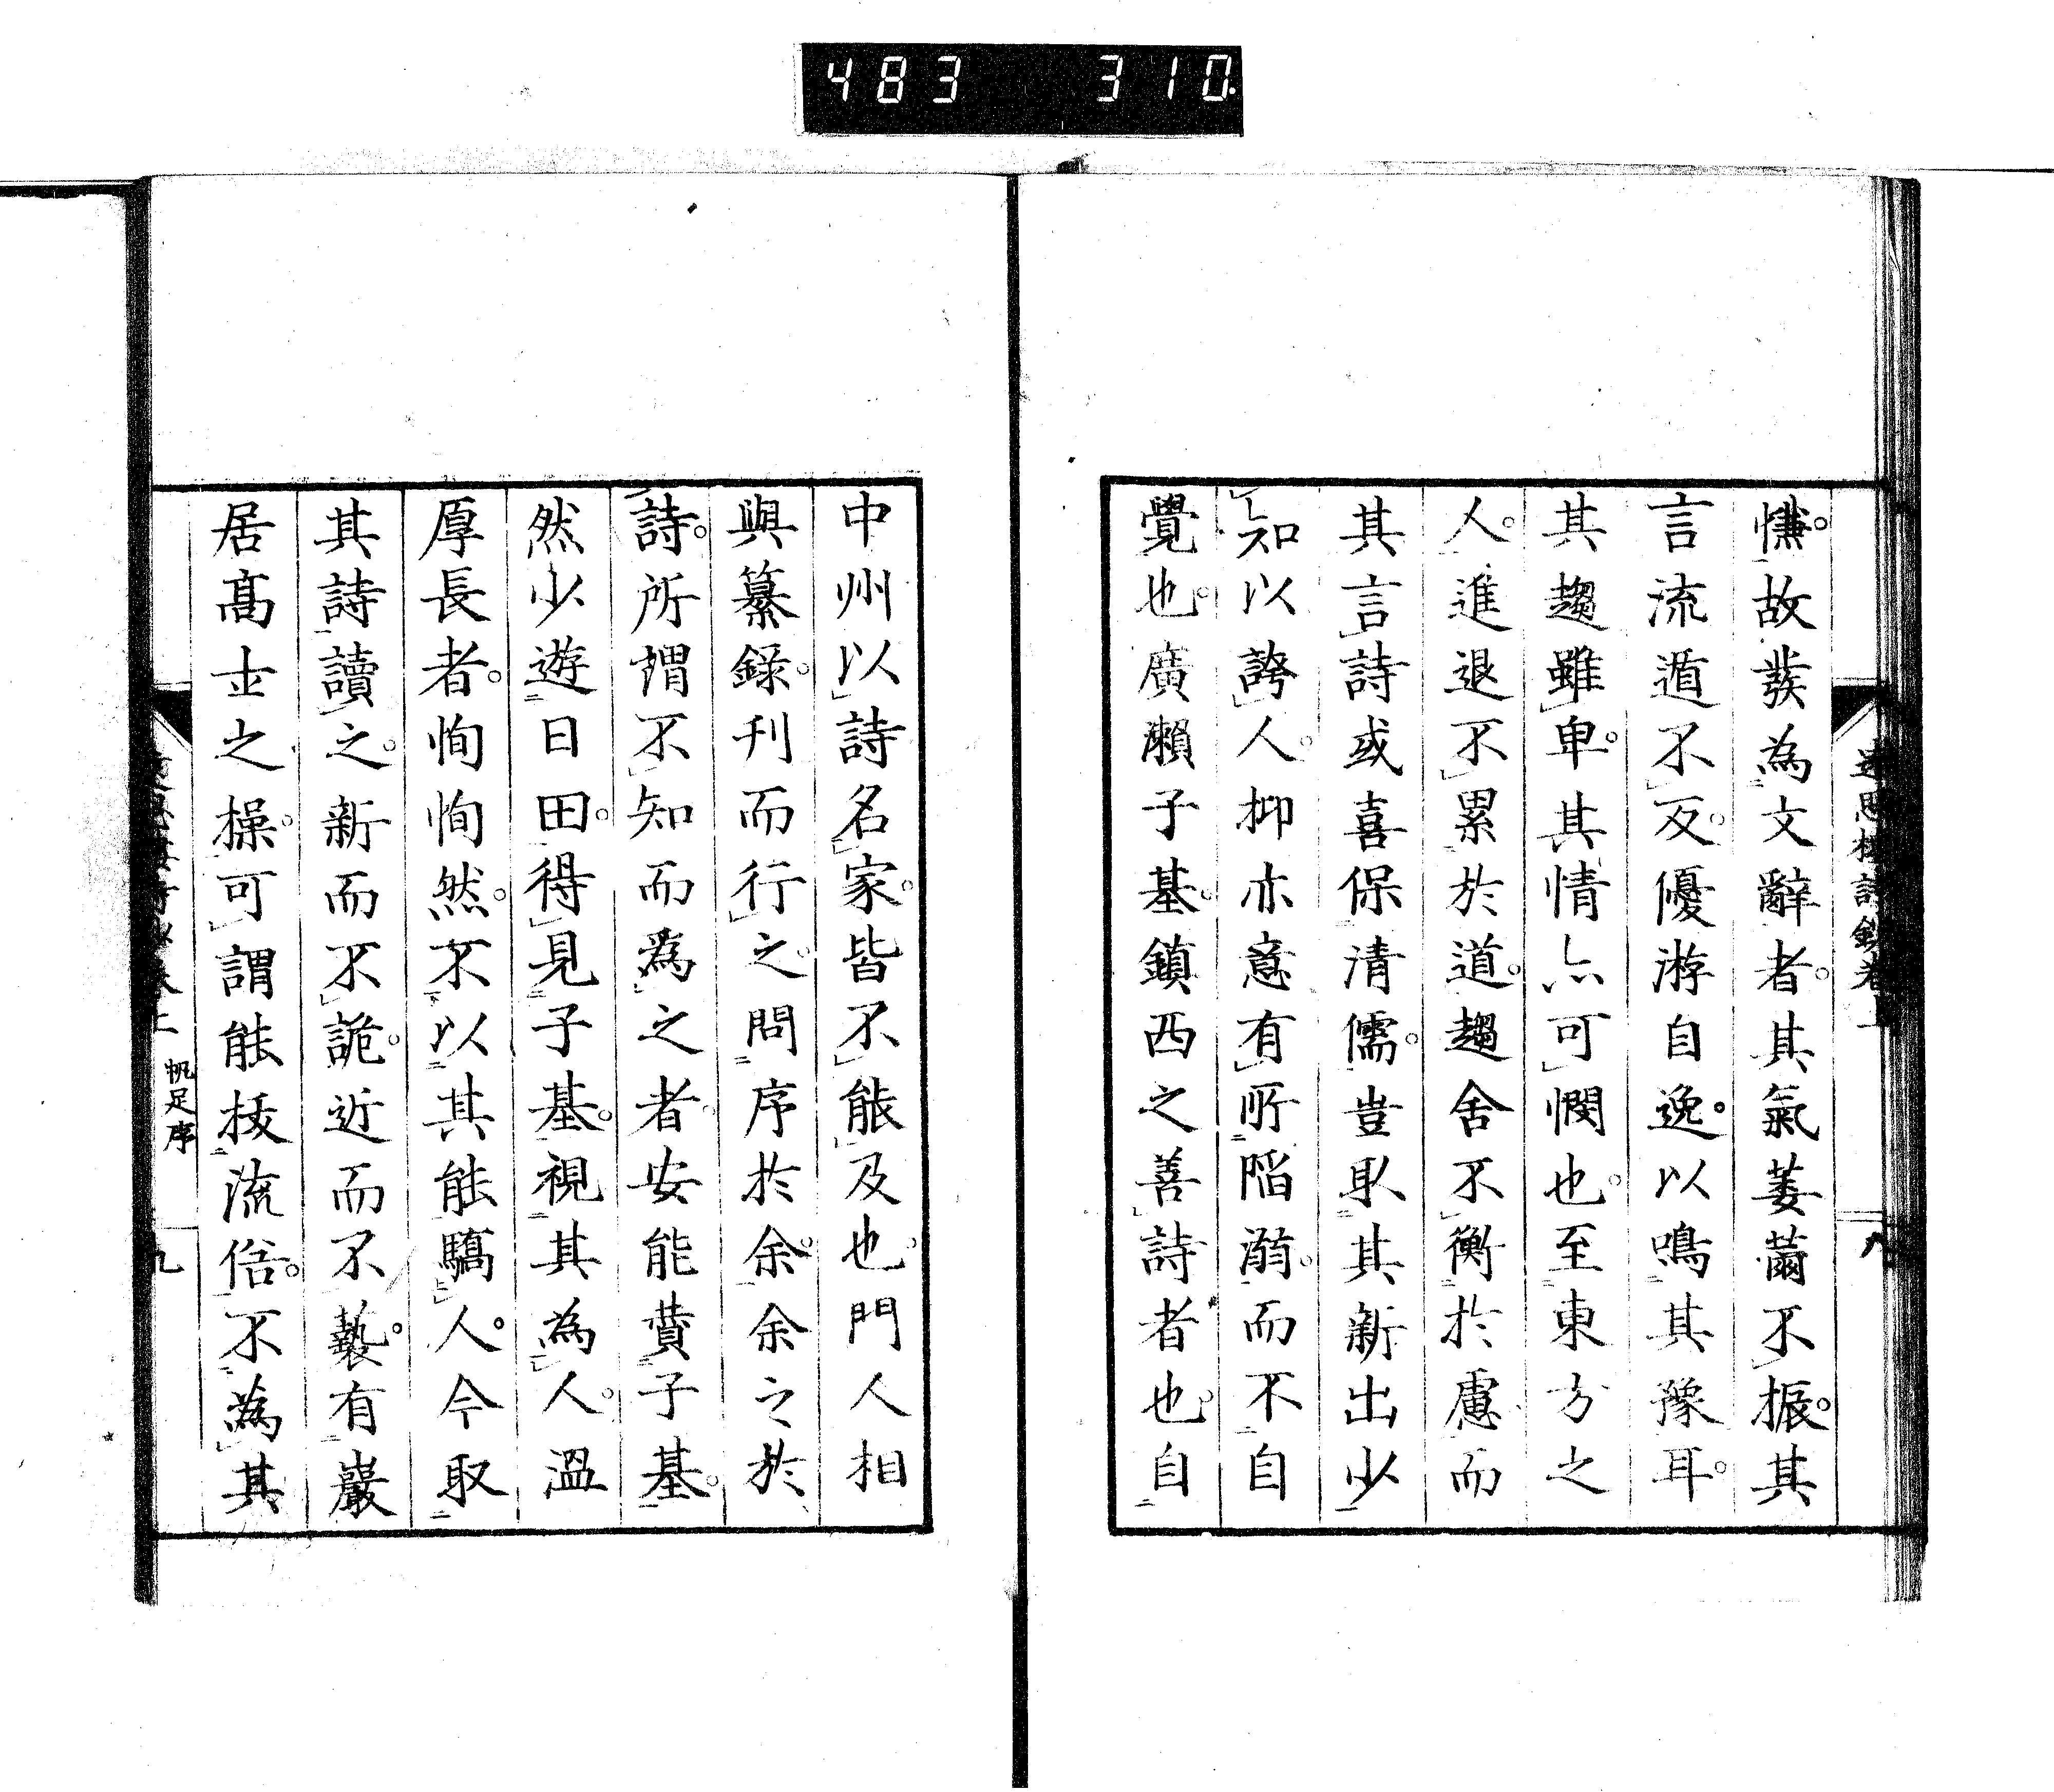 483 310
慊。故発為文辭者。其氣萎薾不振。其
言流遁不反。優游自逸。以鳴其豫耳。
其趨雖卑。其情亦可憫也。至東方之
人。進退不累於道。趨舍不衡於慮。而
其言詩或喜保清儒。豈取其新出少
知以誇人。抑亦意有所陷溺。而不自
覺也。廣瀨子基。鎮西之善詩者也。自
中州以詩名家。皆不能及也。門人相
與纂錄。刊而行之。問序於余。余之於
詩。所謂不知而爲之者。安能賛子基。
然少遊日田。得見子基。視其為人。溫
厚長者。恂恂然。不以其能驕人。今取
其詩讀之。新而不詭。近而不褻。有巖
居髙士之操。可謂能拔流俗。不為其
帆足序
九